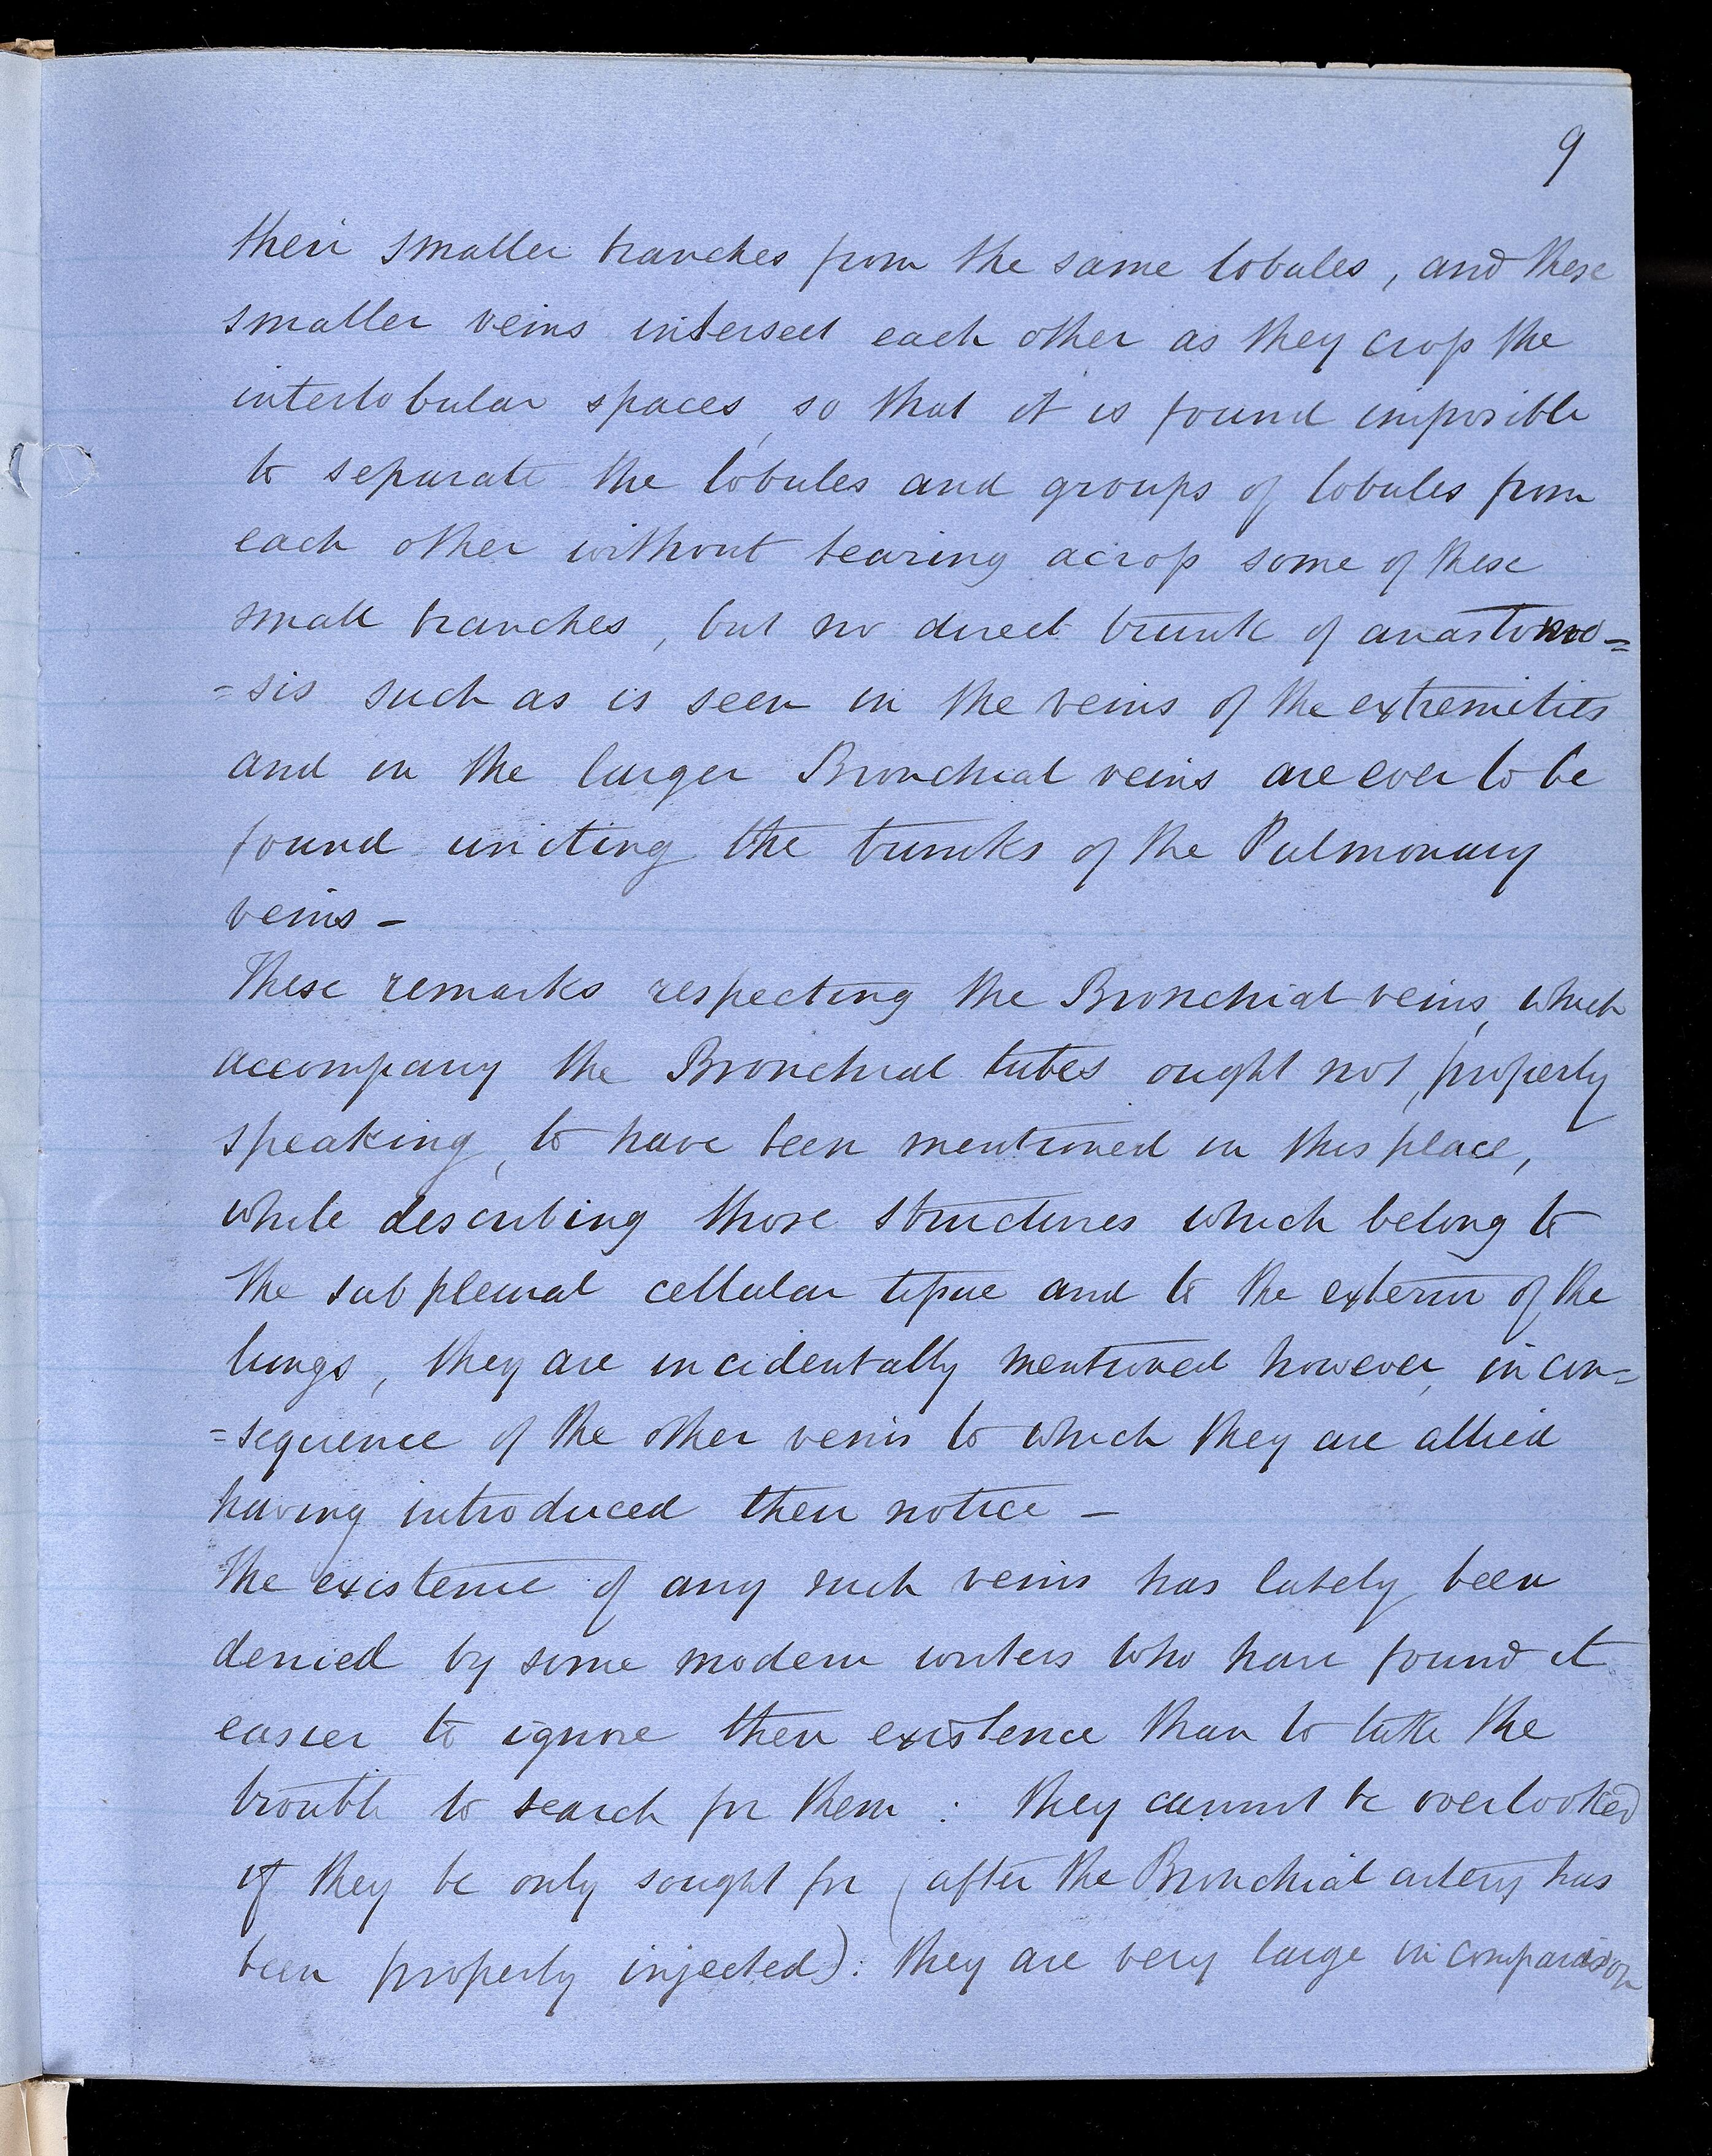 9
their smaller branches from the same lobules, and these
smaller veins intersect each other as they cross the
interlobular spaces, so that it is found impossible
to separate the lobules and groups of lobules from
each other without tearing across some of these
small branches, but no direct trunk of anastomo=
=sis such as is seen in the veins of the extremities
and in the larger Bronchial veins are ever to be
found uniting the trunks of the Pulmonary
veins -
These remarks respecting the Bronchial veins, which
accompany the Bronchial tubes ought not, properly
speaking, to have been mentioned in this place,
while describing those structures which belong to
the sub pleural cellular tissue and to the exterior of the
lungs, they are incidentally mentioned however, in con=
=sequence of the other veins to which they are allied
having introduced their notice -
The existence of any such veins has lately been
denied by some modern writers who have found it
easier to ignore their existence than to take the
trouble to search for them : they cannot be overlooked
if they be only sought for (after the Bronchial artery has
been properly injected): they are very large in comparison